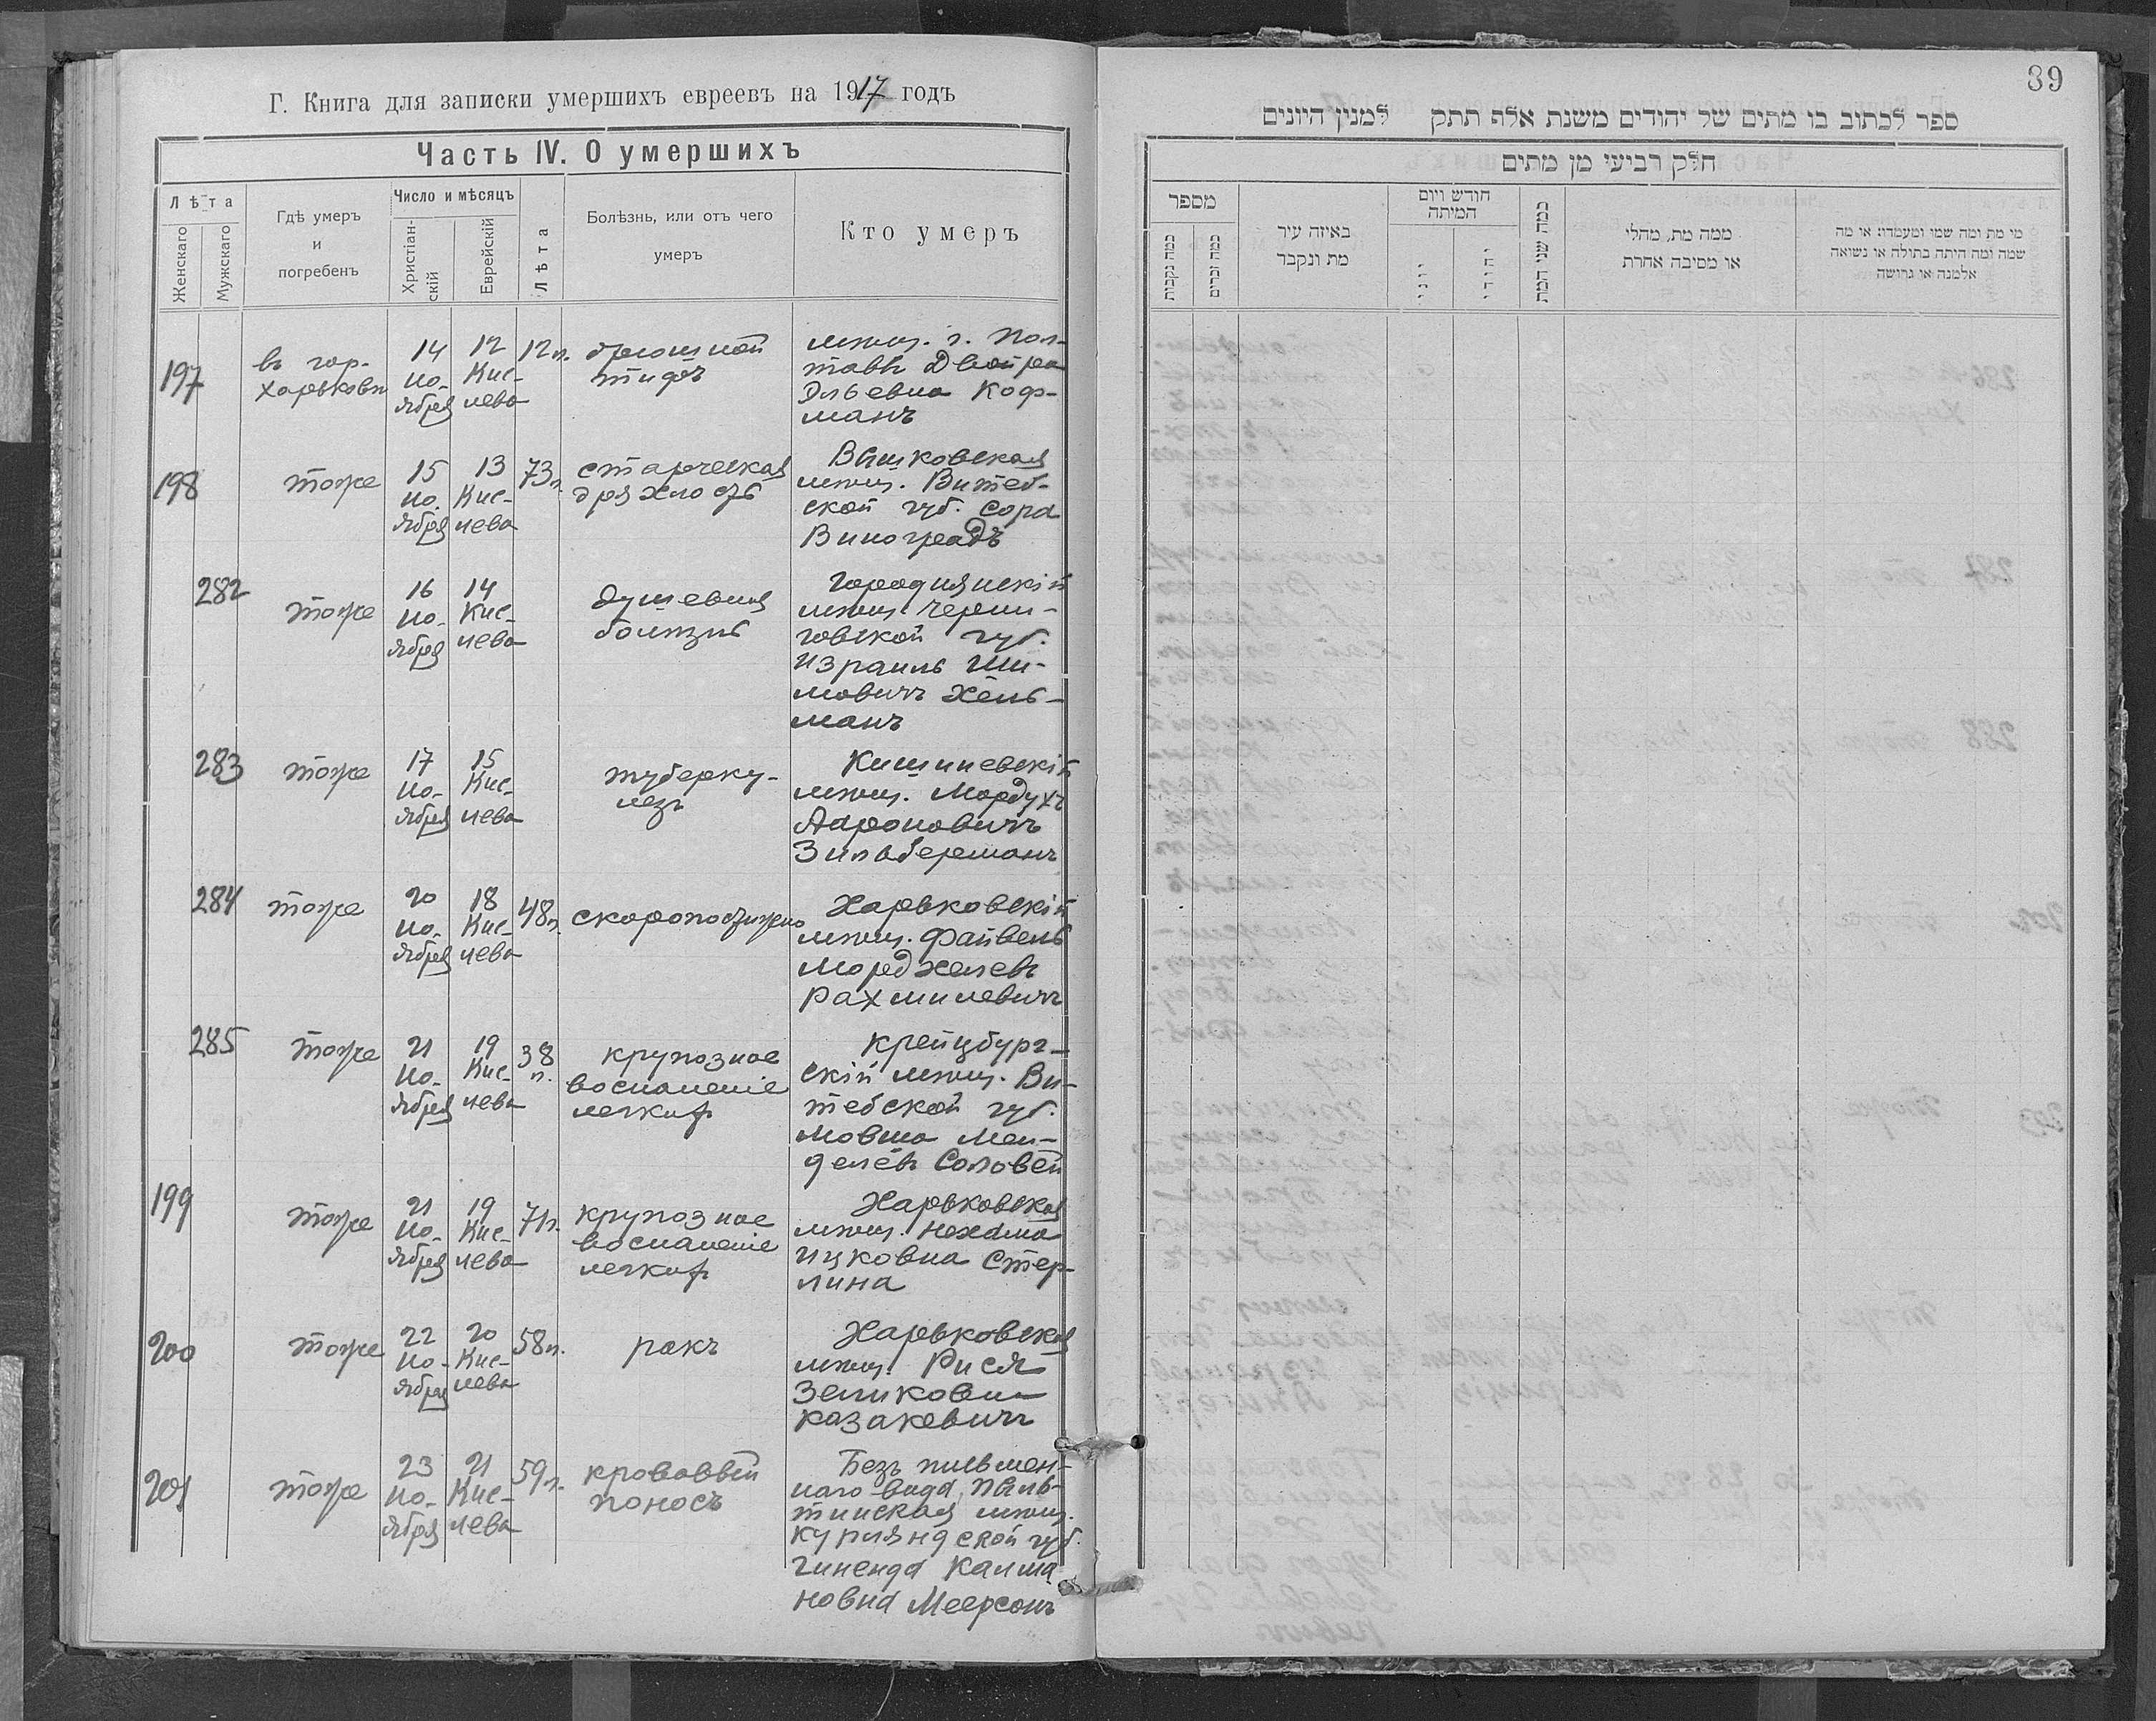 Г. Книга для записки умершихъ евреевъ на 1917 годъ
Часть IV. О умершихъ
Лѣта
Женскаго
Мужскаго
Гдѣ умеръ
и
погребенъ
Число и мѣсяцъ
Христіан-
скій
Еврейскій
Лѣта
Болѣзнь, или отъ чего
умеръ
Кто умеръ
197
въ гор.
Харьковѣ
14
но-
ября
12
Кис-
лева
12 л.
брюшной
тифъ
мѣщ. г. Пол-
тавы Двойра
Эльевна Коф-
манъ
198
тоже
15
но-
ября
13
Кис-
лева
73 л.
старческая
дряхлость
мѣщ. Витеб-
ской губ. Сора
Виноградъ
282
тоже
16
но-
ября
14
Кис-
лева
душевная
болѣзнь
Городнянскій
мѣщ. Черни-
говской губ.
Израиль Ши-
мовичъ Хель-
манъ
283
тоже
17
но-
ября
15
Кис-
лева
туберку-
лезъ
Кишиневскій
мѣщ. Мордухъ
Ароновичъ
Зильберманъ
284
тоже
20
но-
ября
18
Кис-
лева
48 л.
скоропостижно
Харьковскій
мѣщ. Файвель
Морд Хелевъ
Рахмилевичъ
285
тоже
21
но-
ября
19
Кис-
лева
38
л.
крупозное
воспаленіе
легкихъ
Крейцбург-
скій мѣщ. Ви-
тебской губ.
Мовша Мен-
делевъ Соловей
199
тоже
21
но-
ября
19
Кис-
лева
71 л.
крупозное
воспаленіе
легкихъ
Харьковская
мѣщ. Нехама
Ицковна Стер-
лина
200
тоже
22
но-
ября
20
Кис-
лева
58 л.
ракъ
Харьковская
мѣщ. Рися
Зеликовна
Казакевичъ
201
тоже
23
но-
ября
21
Кис-
лева
59 л.
кровавый
поносъ
Безъ письмен-
наго вида, Пиль-
тинская мѣщ.
Курляндской губ.
Гиненда Калма
новна Меерсонъ
39
ספר לכתוב בו מתים של יהודים משנת אלף תתק למנין היונים
חלק רביעי מן מתים
מספר
כמה נקבות
כמה זכרים
באיזה עיר
מת ונקבר
חודש ויום
המיתה
יוני
יהודי
כמה שני המת
ממה מת, מחלי
או מסיבה אחרת
מי מת ומה שמו ומעמדו: או מה
שמה ומה היתה בתולה או נשואה
אלמנה או גרושה